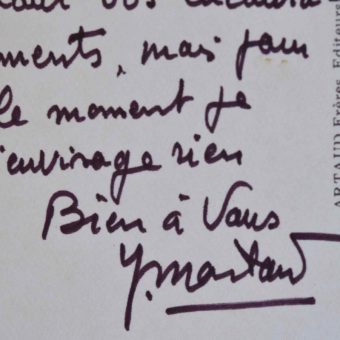 vos encadra
ments, mais pour
le moment je
n'envisage rien
Bien à Vous
Y. Montand
ARTAUD Frères, Editeurs